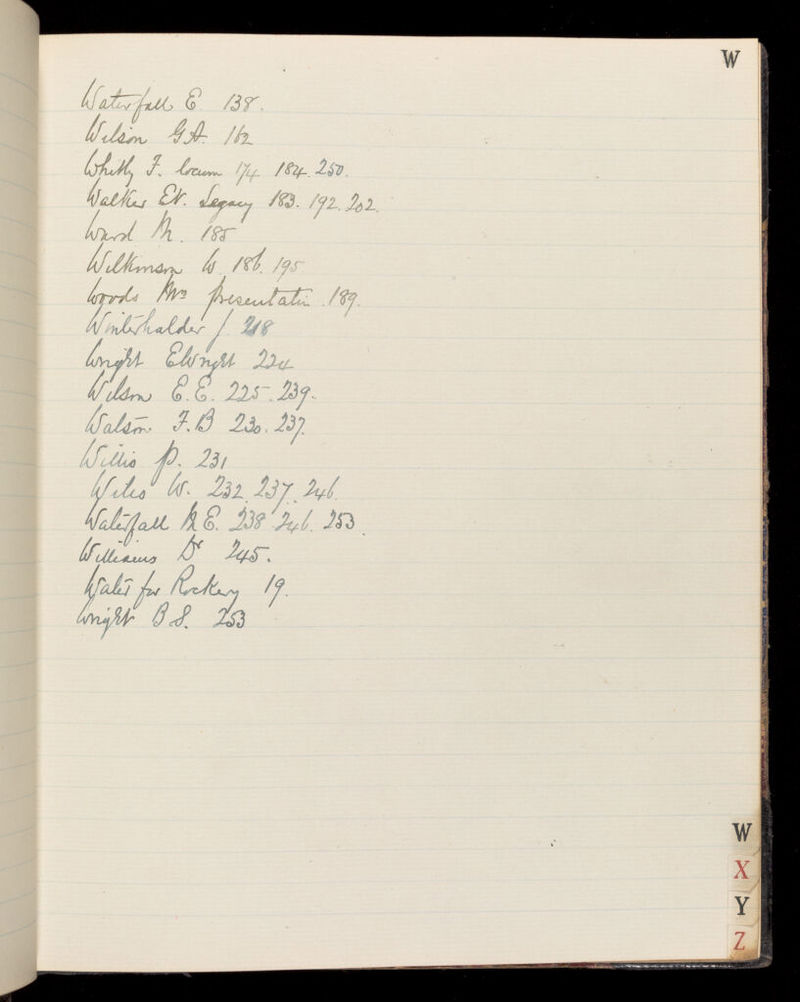 W
Waterfall E 138.
Wilson G.A. 162
Whitly F. locum 174 184. 250.
Walker EV. Legacy 183. 192. 202.
Ward M. 185
Wilkinson W. 186. 195
Woods Mrs presentatin 189.
Winterhalder J. 218
Wright EWright 224
Wilson E.E. 225. 239.
Watson F.B 230. 237.
Willis P. 231
Wiles W. 232. 237. 246.
Waterfall M E. 238 246. 253.
Williams Dr 245.
Water for Rockery 19.
Wright B S. 253
W
X
Y
Z